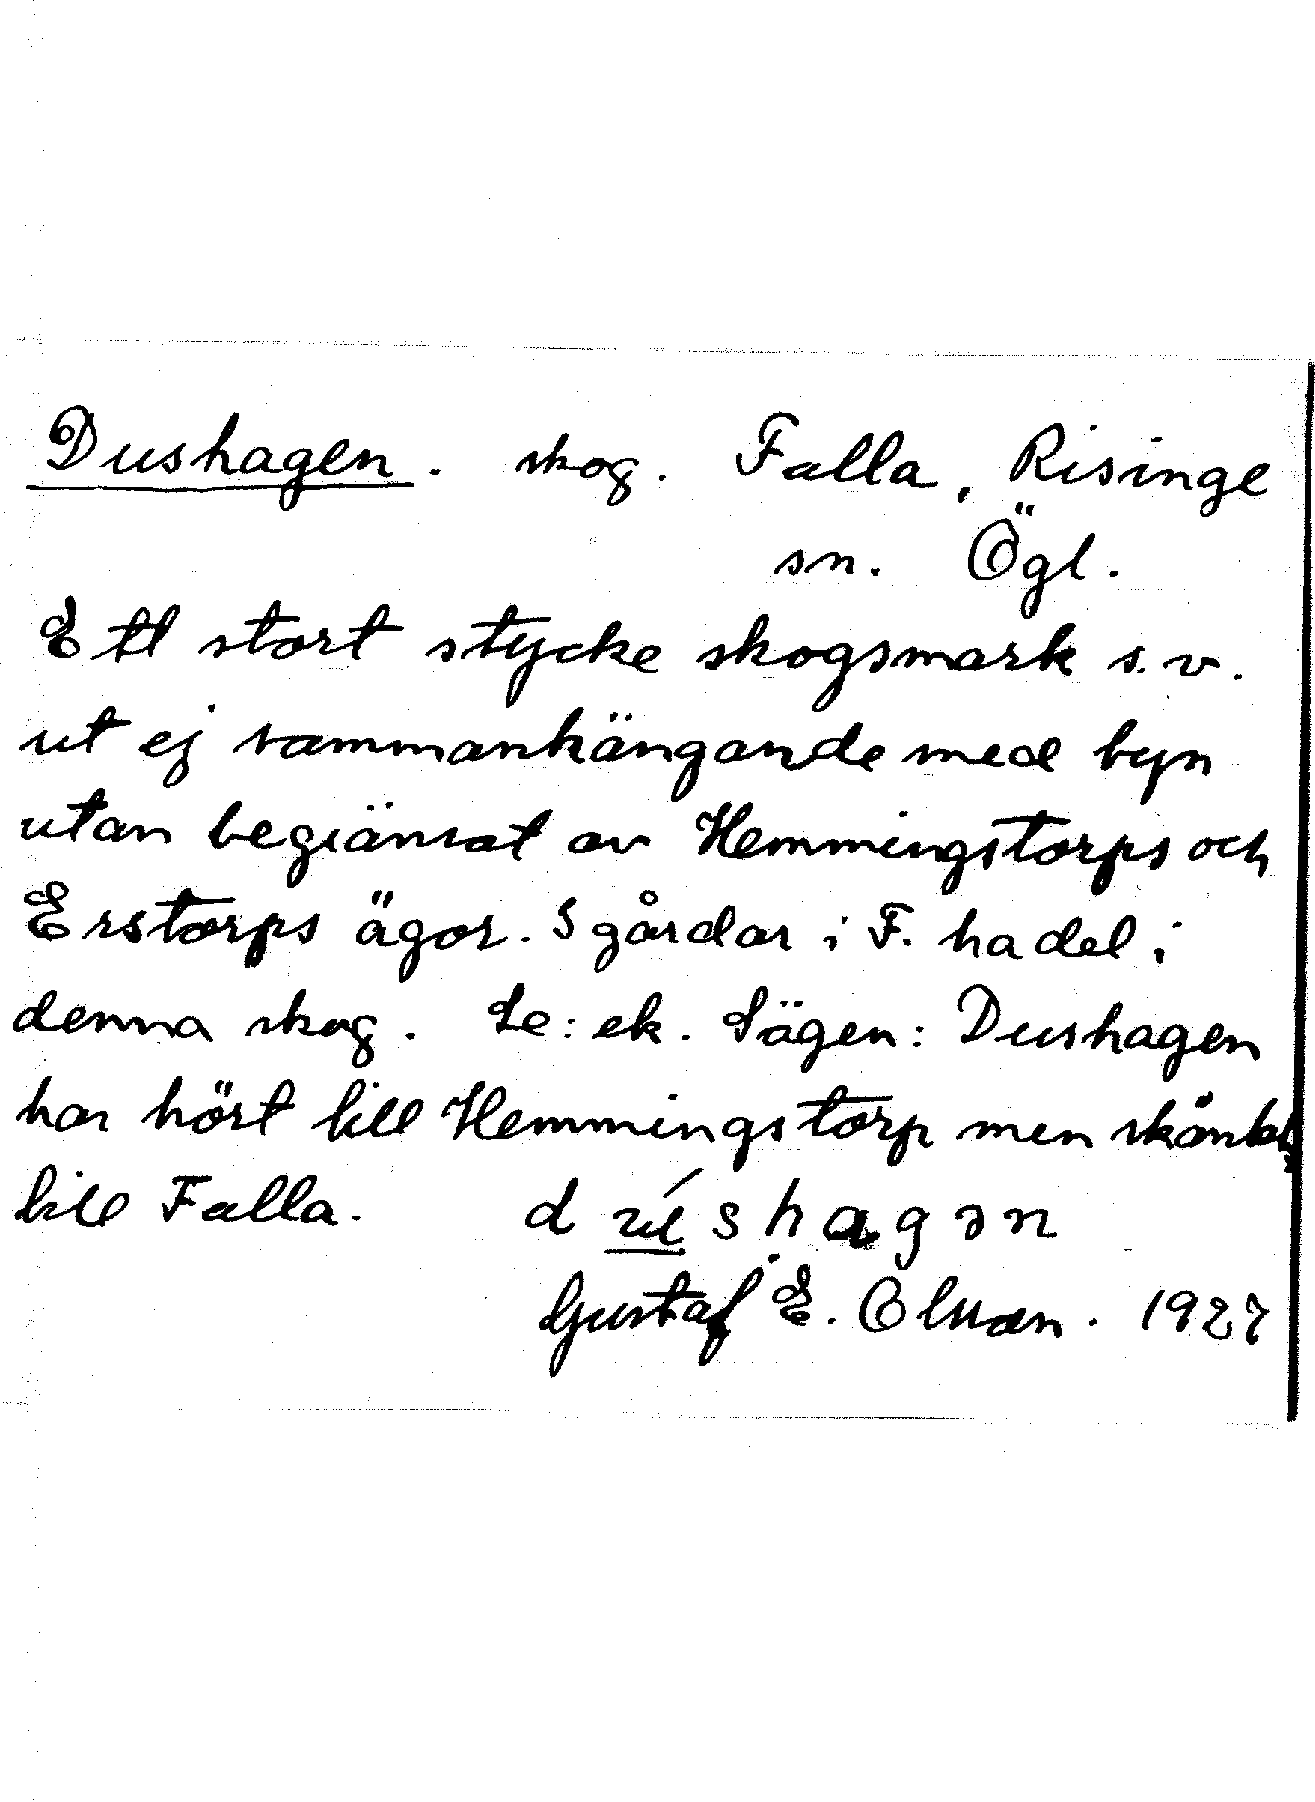 Dushagen. skog. Falla, Risinge
sn. Ögl.
Ett stort stycke skogsmark s.v.
ut ej sammanhängande med byn
utan begränsat av Hemmingstorps och
Erstorps ägor. 5 gårdar i F. ha del i
denna skog. Le: ek. Sägen: Dushagen
har hört till Hemmingstorp men skänkts
till Falla. d úshagən
Gustaf E. Olsson. 1927